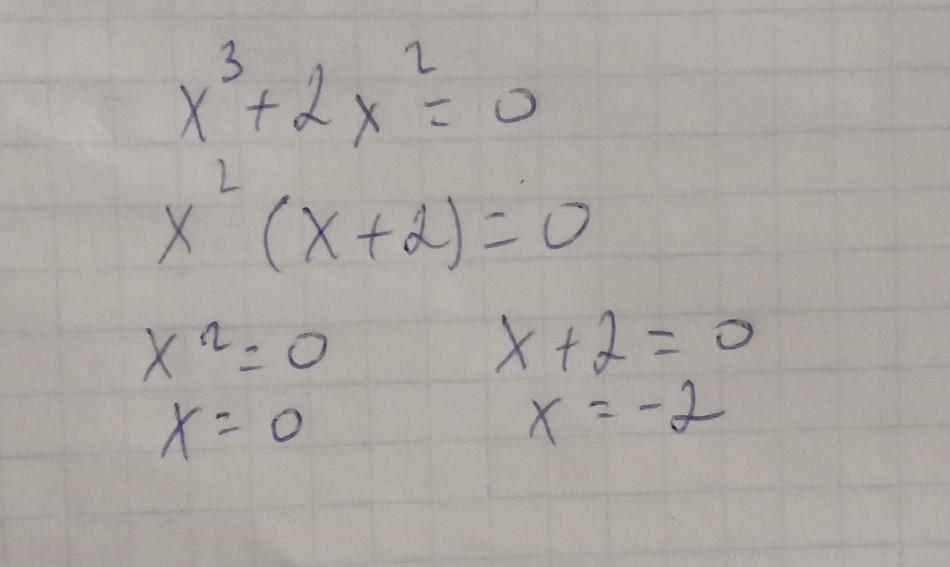 x³+2x²=0
x²(x+2)=0
x²=0 x+2=0
x=0 x=-2